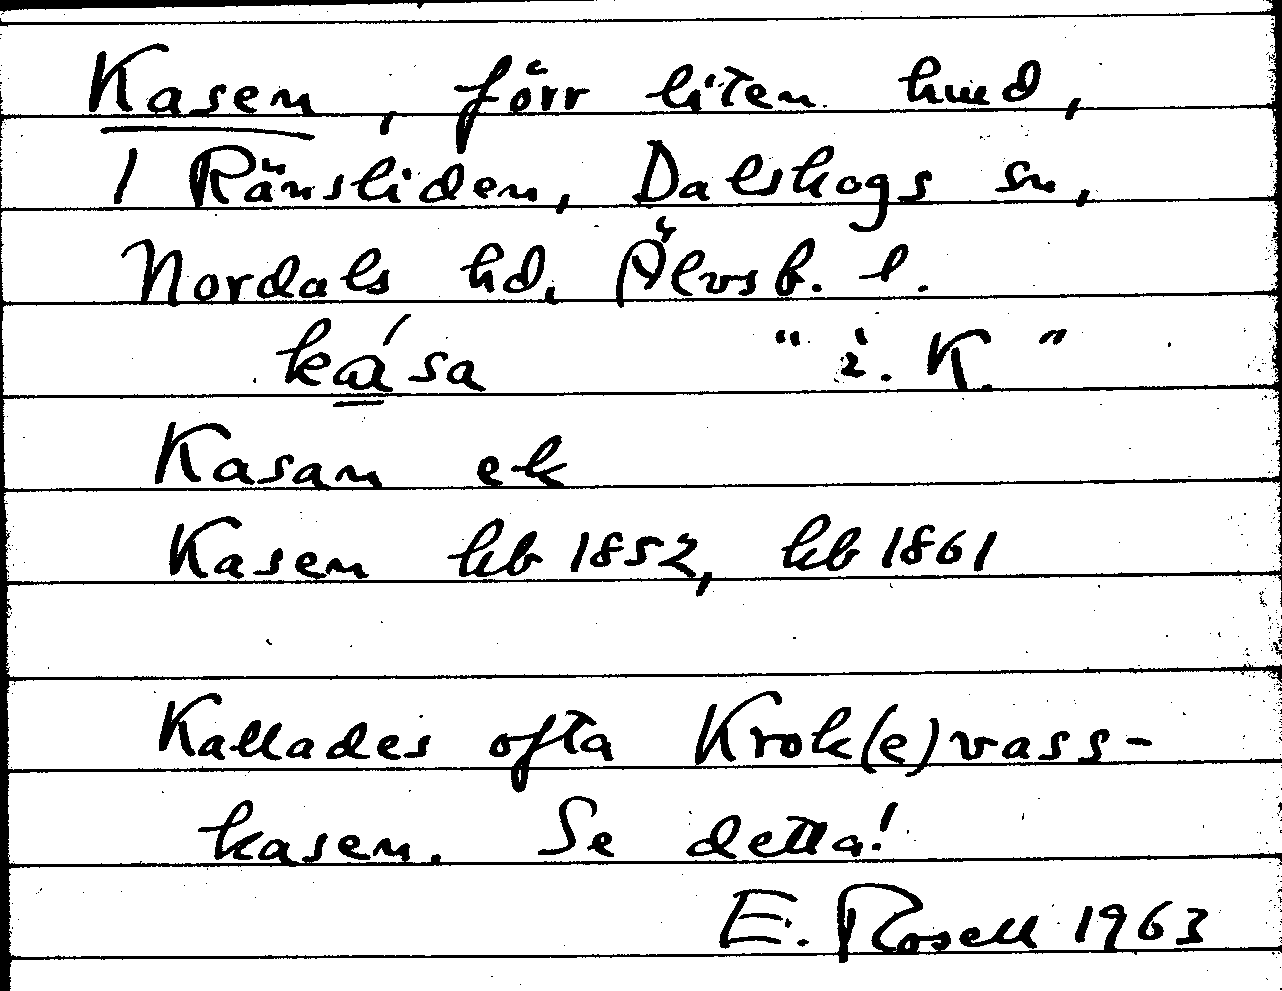 Kasen, förr liten hmd,
1 Ränsliden, Dalskogs sn,
Nordals hd. Älvsb. l.
ká̳sa " i. K "
Kasan ek
Kasen hb 1852, hb 1861
Kallades ofta Krok(e)vass-
kasen. Se detta!
E. Rosell 1963